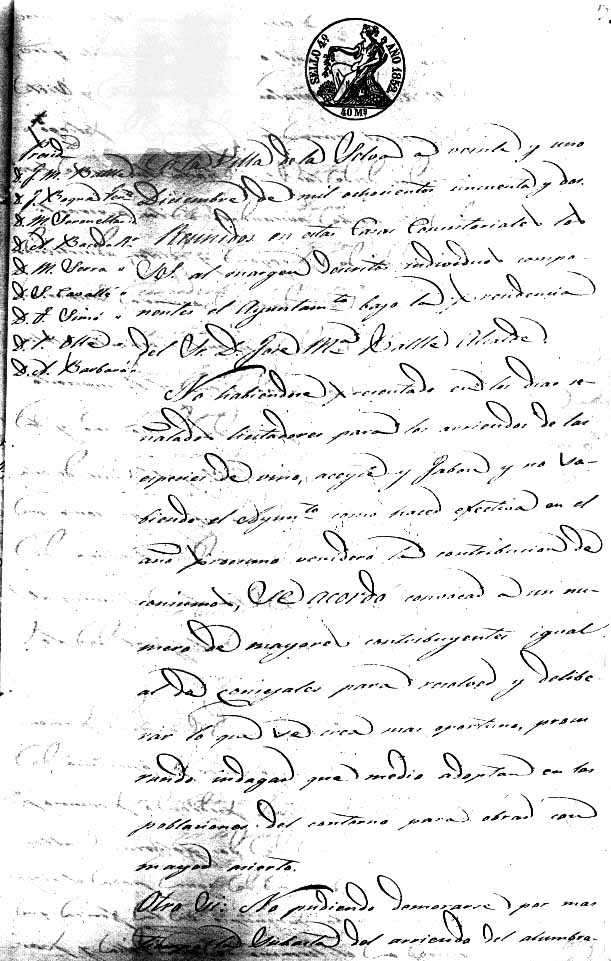 SELLO 4º AÑO 1852.
40 Mº
D. J. Mª Batlle
D. M. Serra
D. J. Simó
D. A. Barbará
En la Villa de la Selva a veinte y uno
Diciembre de mil ochocientos cincuenta y dos.
Reunidos en estas Casas Consistoriales los
SS. al margen descritos individuos compo-
nentes el Ayuntamto bajo la presidencia
del Sr. D. José Ma Batlle Alcalde.
No habiendose presentado en los dias se-
ñalados licitadores para los arriendos de las
especies de vino, aceyte y Jabon y no sa-
biendo el Ayunto como hacer efectiva en el
año procsimo venidero la contribucion de
consumos, se acordó convocar a un nu-
mero de mayores contribuyentes igual
al de concejales para resolver y delibe-
rar lo que se crea mas oportuno, procu-
rando indagar que medio adoptan en las
poblaciones del contorno para obrar con
mayor acierto.
Otro Si: No pudiendo demorarse por mas
tiempo la subasta del arriendo del alumbra-